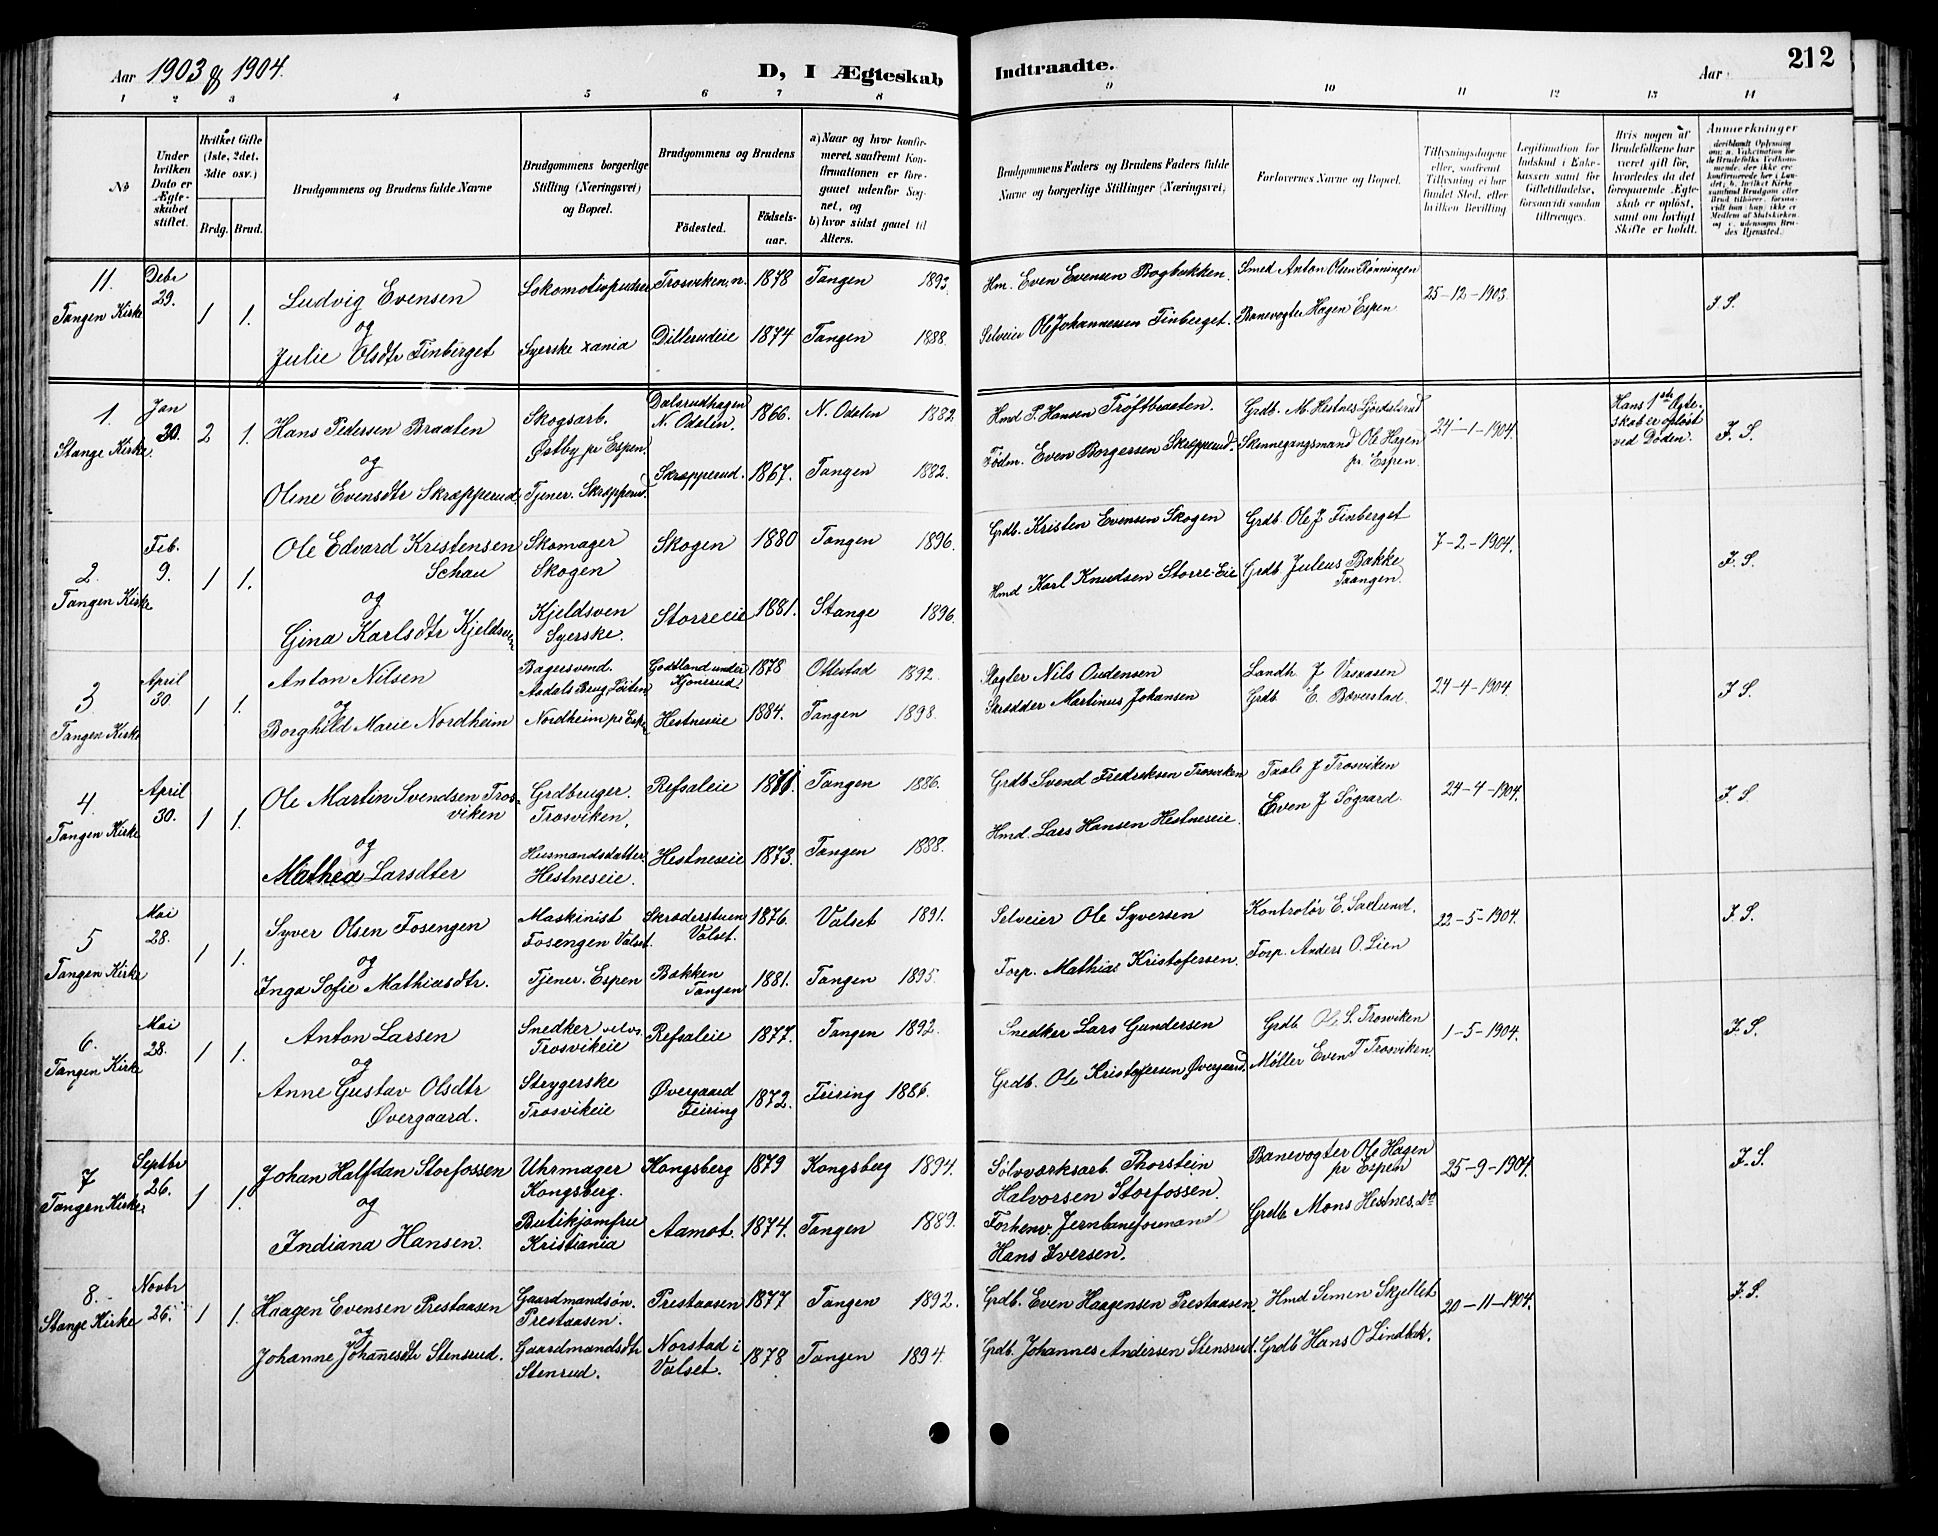 Aar 1903 & 1904.
D, I Ægteskab Indtraadte.
Aar
212
1 2 3 4 5 6 7 8 9 10 11 12 13 14
No
Under hvilken Dato er Ægteskabet stiftet.
Hvilket Gifte (1ste, 2det, 3die osv.)
Brdg. Brud.
Brudgommens og Brudens fulde Navne
Brudgommens borgerlige Stilling (Næringsvei) og Bopæl.
Brudgommens og Brudens
Fødested. Fødselsaar.
a) Naar og hvor konfirmeret, saafremt Konfirmationen er foregaaet udenfor Sognet, og
b) hvor sidst gaaet til Alters.
Brudgommens Faders og Brudens Faders fulde Navne og borgerlige Stillinger (Næringsvei)
Forlovernes Navne og Bopæl.
Tillysningsdagene eller, saafremt Tillysning ei har fundet Sted, efter hvilken Bevilling
Legitimation for Indskud i Enkekassen samt for Giftetilladelse, forsaavidt saadan tiltrænges.
Hvis nogen af Brudefolkene har været gift før, hvorledes da det foregaaende Ægteskab er opløst, samt om lovligt Skifte er holdt.
Anmærkninger
11. Tangen Kirke Debr 29. 1 1. Ludvig Evensen Lokomotivpudser Trosviken n. 1878 Tangen 1893. Hm. Even Evensen Bogbakken. Smed Anton Olsen Rønningen 25-12-1903. J. S.
og
Julie Olsdtr Finberget Syerske Xania Dillerudeie 1874 Tangen 1888. Selveier Ole Johannessen Finberget. Banevogter Hagen Espen
1. Stange Kirke. Jan 30. 2 1. Hans Pedersen Braaten Skogsarb. Østby pr Espen. Dalsrudhagen N. Odalen 1866. N. Odalen 1882. Hmd P. Hansen Trøftbraaten. Grdb. M. Hestnes Fjordsbrud 24-1-1904. Hans 1ste Ægteskab er opløst ved Døden. J. S.
og
Oline Evensdtr Skrapperud Tjener. Skrapperud. Skrapperud. 1867. Tangen 1882. Fødm. Even Borgersen Skrapperud. Skinnegangsmand Ole Hagen pr. Espen.
2. Tangen Kirke Feb. 9. 1 1. Ole Edvard Kristensen Schau Skomager Skogen Skogen 1880 Tangen 1896. Grdb. Kristen Evensen Skogen Grdb. Ole J Finberget 7-2-1904. J. S.
og
Gina Karlsdtr Kjeldsven Kjeldsven Syerske. Storreeie 1881. Stange 1896. Hmd Karl Knudsen Storre-Eie Grdb. Juleus Bakke Taangen.
3 Tangen Kirke April 30. 1 1. Anton Nilsen Bagersvend. Aadals Brug Løiten Godtland under Kjonerud. 1878 Ottestad 1892. Slagter Nils Oudensen Landh. J 24-4-1904. J. S.
og
Borghild Marie Nordheim Nordheim pr Espen Hestneseie 1884. Tangen 1898. Skrædder Martinus Johansen Grdb. E. Bøverstad.
4. Tangen Kirke April 30. 1 1. Ole Martin Svendsen Trosviken Grdbruger. Trosviken, Refsaleie 1871. Tangen 1886. Grdb. Svend Fredriksen Trosviken Taale J Trosviken 24-4-1904. J. S.
og
Mathea Larsdter Husmandsdatter. Hestneseie. Hestneseie 1873. Tangen 1888. Hmd. Lars Hansen Hestneseie. Even J Søgaard.
5 Tangen Kirke Mai 28. 1 1. Syver Olsen Fosengen Maskinist Fosengen Valset. Skræderstuen Valset. 1876. Valset 1891. Selveier Ole Syversen Kontrolør E. Saxlund. 22-5-1904. J. S.
og
Inga Sofie Mathiasdtr. Tjener. Espen Bakken Tangen 1881. Tangen 1895. Torp. Mathias Kristofersen. Torp. Anders O. Lien
6. Tangen Kirke Mai 28. 1 1. Anton Larsen Snedker Trosvikeie Refsaleie 1877. Tangen 1892. Snedker Lars Gundersen Grdb. Ole S. Trosviken 1-5-1904. J. S.
og
Anne Gustav Olsdtr Øvergaard. Strygerske Trosvikeie Øvergaard Feiring 1872. Feiring 1886. Grdb. Ole Kristofersen Øvergaard. Møller Even T Trosviken.
7 Tangen Kirke. Septbr 26. 1 1. Johan Halfdan Storfossen Uhrmager Kongsberg. Kongsberg 1879 Kongsberg 1894. Sølvværksarb. Thorstein Halvorsen Storfossen. Banevogter Ole Hagen pr Espen 25-9-1904. J. S.
og
Indiana Hansen. Butikjomfru Kristiania Aamot. 1874. Tangen 1889. Forhenv. Jernbaneformand Hans Iversen. Grdb Mons Hestnes. Do
8. Stange Kirke Novbr 26. 1 1. Haagen Evensen Prestaasen Gaardmandsøn. Prestaasen. Prestaasen 1877 Tangen 1892. Grdb. Even Haagensen Prestaasen. Hmd Simen Skjellet 20-11-1904. J. S.
og
Johanne Johannesdtr Stensrud. Gaardmandsdtr Stenrud. Norstad i Valset. 1878 Tangen 1894. Grdb. Johannes Andersen Stensrud. Grdb Hans O Lindbak.